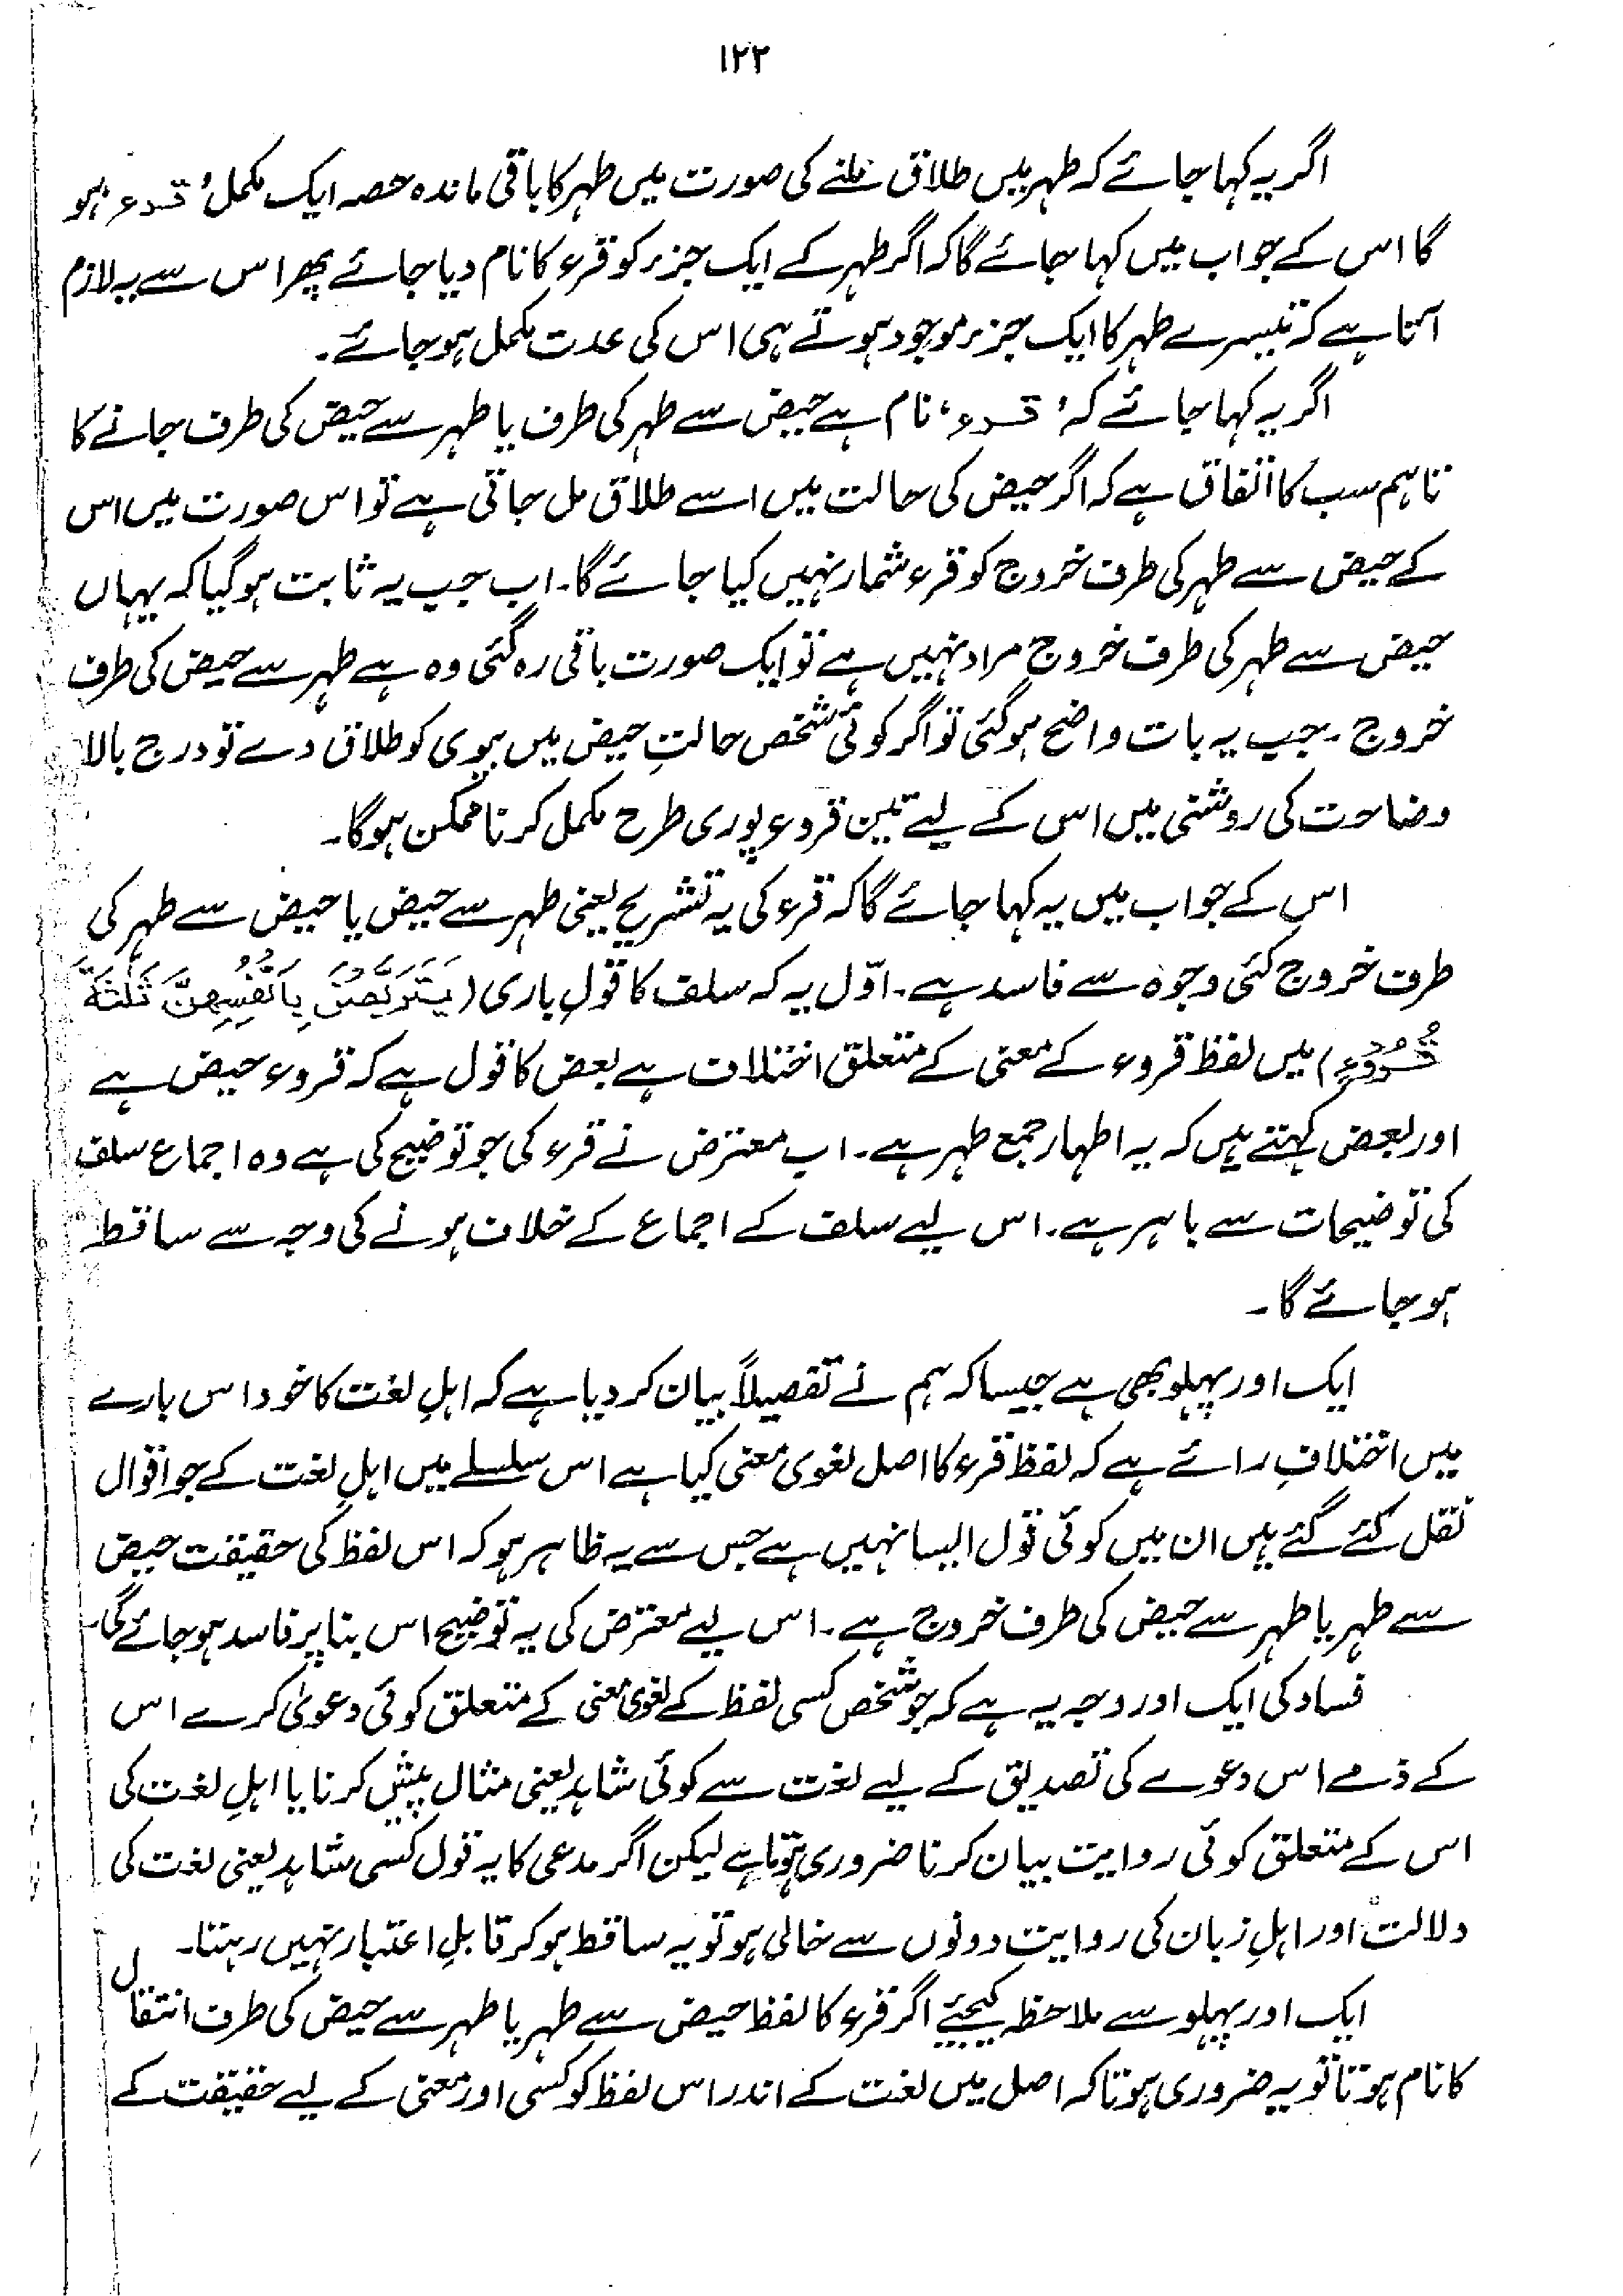 ۱۲۲
اگر یہ کہا جائے کہ طہر میں طلاق ملنے کی صورت میں طہر کا باقی ماندہ حصہ ایک مکمل ’قرء‘ ہو
گا اس کے جواب میں کہا جائے گا کہ اگر طہر کے ایک جزء کو قرء کا نام دیا جائے پھر اس سے یہ لازم
آتا ہے کہ تیسرے طہر کا ایک جزء موجود ہوتے ہی اس کی عدت مکمل ہو جائے۔
اگر یہ کہا جائے کہ ’قرء‘ نام ہے حیض سے طہر کی طرف یا طہر سے حیض کی طرف جانے کا
تاہم سب کا اتفاق ہے کہ اگر حیض کی حالت میں اسے طلاق مل جاتی ہے تو اس صورت میں اس
کے حیض سے طہر کی طرف خروج کو قرء شمار نہیں کیا جائے گا۔ اب جب یہ ثابت ہو گیا کہ یہاں
حیض سے طہر کی طرف خروج مراد نہیں ہے تو ایک صورت باقی رہ گئی وہ ہے طہر سے حیض کی طرف
خروج۔ جب یہ بات واضح ہو گئی تو اگر کوئی شخص حالتِ حیض میں بیوی کو طلاق دے تو درج بالا
وضاحت کی روشنی میں اس کے لیے تین قروء پوری طرح مکمل کرنا ممکن ہوگا۔
اس کے جواب میں یہ کہا جائے گا کہ قرء کی یہ تشریح یعنی طہر سے حیض یا حیض سے طہر کی
طرف خروج کئی وجوہ سے فاسد ہے۔ اوّل یہ کہ سلف کا قولِ باری (يَتَرَبَّصْنَ بِاَنْفُسِهِنَّ ثَلٰثَةَ
قُرُوْءٍ) میں لفظ قروء کے معنی کے متعلق اختلاف ہے بعض کا قول ہے کہ قروء حیض ہے
اور بعض کہتے ہیں کہ یہ اطہار جمع طہر ہے۔ اب معترض نے قرء کی جو توضیح کی ہے وہ اجماع سلف
کی توضیحات سے باہر ہے۔ اس لیے سلف کے اجماع کے خلاف ہونے کی وجہ سے ساقط
ہو جائے گا۔
ایک اور پہلو بھی ہے جیسا کہ ہم نے تفصیلاً بیان کر دیا ہے کہ اہلِ لغت کا خود اس بارے
میں اختلافِ رائے ہے کہ لفظ قرء کا اصل لغوی معنی کیا ہے اس سلسلے میں اہلِ لغت کے جو اقوال
نقل کئے گئے ہیں ان میں کوئی قول ایسا نہیں ہے جس سے یہ ظاہر ہو کہ اس لفظ کی حقیقت حیض
سے طہر یا طہر سے حیض کی طرف خروج ہے۔ اس لیے معترض کی یہ توضیح اس بنا پر فاسد ہو جائے گی۔
فساد کی ایک اور وجہ یہ ہے کہ جو شخص کسی لفظ کے لغوی معنی کے متعلق کوئی دعویٰ کرے اس
کے ذمے اس دعوے کی تصدیق کے لیے لغت سے کوئی شاہد یعنی مثال پیش کرنا یا اہلِ لغت کی
اس کے متعلق کوئی روایت بیان کرنا ضروری ہوتا ہے لیکن اگر مدعی کا یہ قول کسی شاہد یعنی لغت کی
دلالت اور اہلِ زبان کی روایت دونوں سے خالی ہو تو یہ ساقط ہو کر قابلِ اعتبار نہیں رہتا۔
ایک اور پہلو سے ملاحظہ کیجئے اگر قرء کا لفظ حیض سے طہر یا طہر سے حیض کی طرف انتقال
کا نام ہوتا تو یہ ضروری ہوتا کہ اصل میں لغت کے اندر اس لفظ کو کسی اور معنی کے لیے حقیقت کے